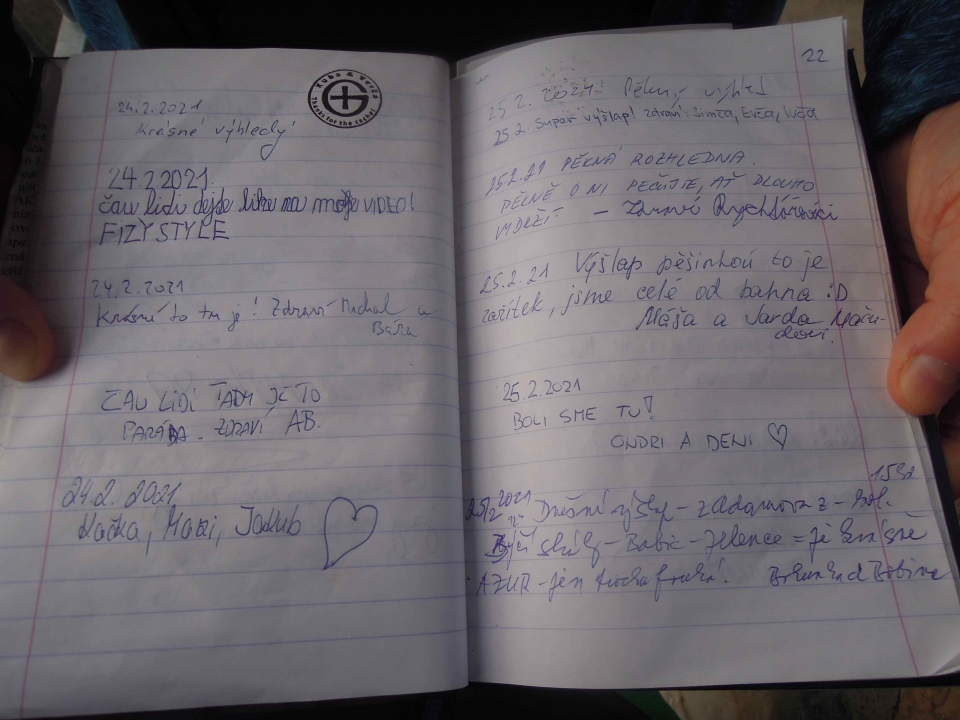 24.2.2021
Krásné výhledy
Kuba & Verča
Thanks for the cache!
24.2 2021.
čau lidi dejte like na moje VIDEO!
FIZYSTYLE
24.2.2021
Krásně to tu je! Zdraví Michal a
Bára
ČAU LIDI TADY JE TO
PARÁDA. ZDRAVÍ AB.
24.2. 2021
Kačka, Jakub
22
25.2. Pěkný výhled
25.2. Super výšlap! zdraví Simča, Evča,
25.2.21 PĚKNÁ ROZHLEDNA.
PĚČNĚ O NI PEČUJTE, AŤ DLOUHO
VYDRŽÍ -
25.2.21 Výšlap pěšinkou to je
zážitek, jsme celé od bahna :D
Máša a Jarda
25.2.2021
BOLI SME TU!
ONDRI A DENI ♡
25/2 2021 Dnešní výšlap - z Adamova z -
Býčí skály - Babic - Jelence = je krásně
AZUR - jen trocha fouká!